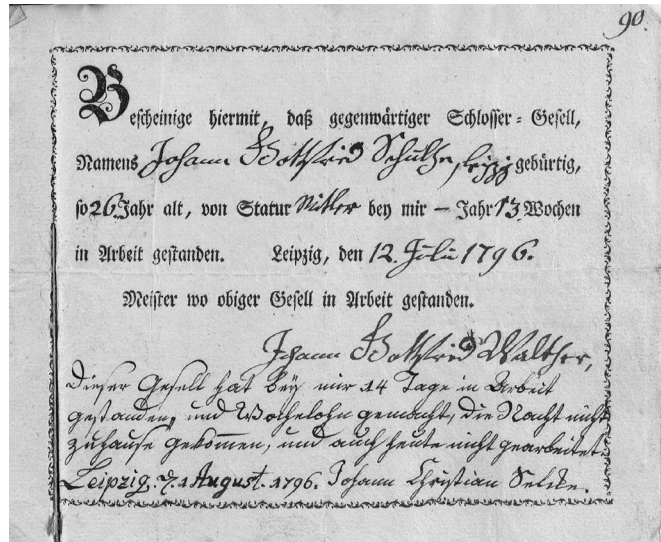 90.
Bescheinige hiermit, daß gegenwärtiger Schlosser-Gesell,
Namens Johann Gottfried Schultze, Leipzig gebürtig,
so 26 Jahr alt, von Statur Mitler bey mir — Jahr 13 Wochen
in Arbeit gestanden. Leipzig, den 12. Julii 1796.
Meister wo obiger Gesell in Arbeit gestanden.
Johann Gottfried Walther,
Dieser Gesell hat bey mir 14 Tage in Arbeit
gestanden, und Wochelohn gemacht, die Nacht nicht
zuhause gekommen, und auch heute nicht gearbeitet.
Leipzig. d. 1 August. 1796. Johann Christian